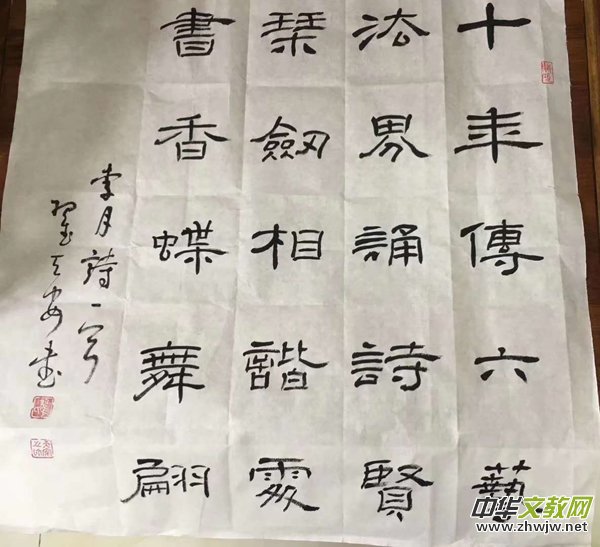 十年傳六藝
法界誦詩賢
琹劒相諧處
書香蝶舞翩
李月詩一首
书
中华文教网
www.zhwjw.net